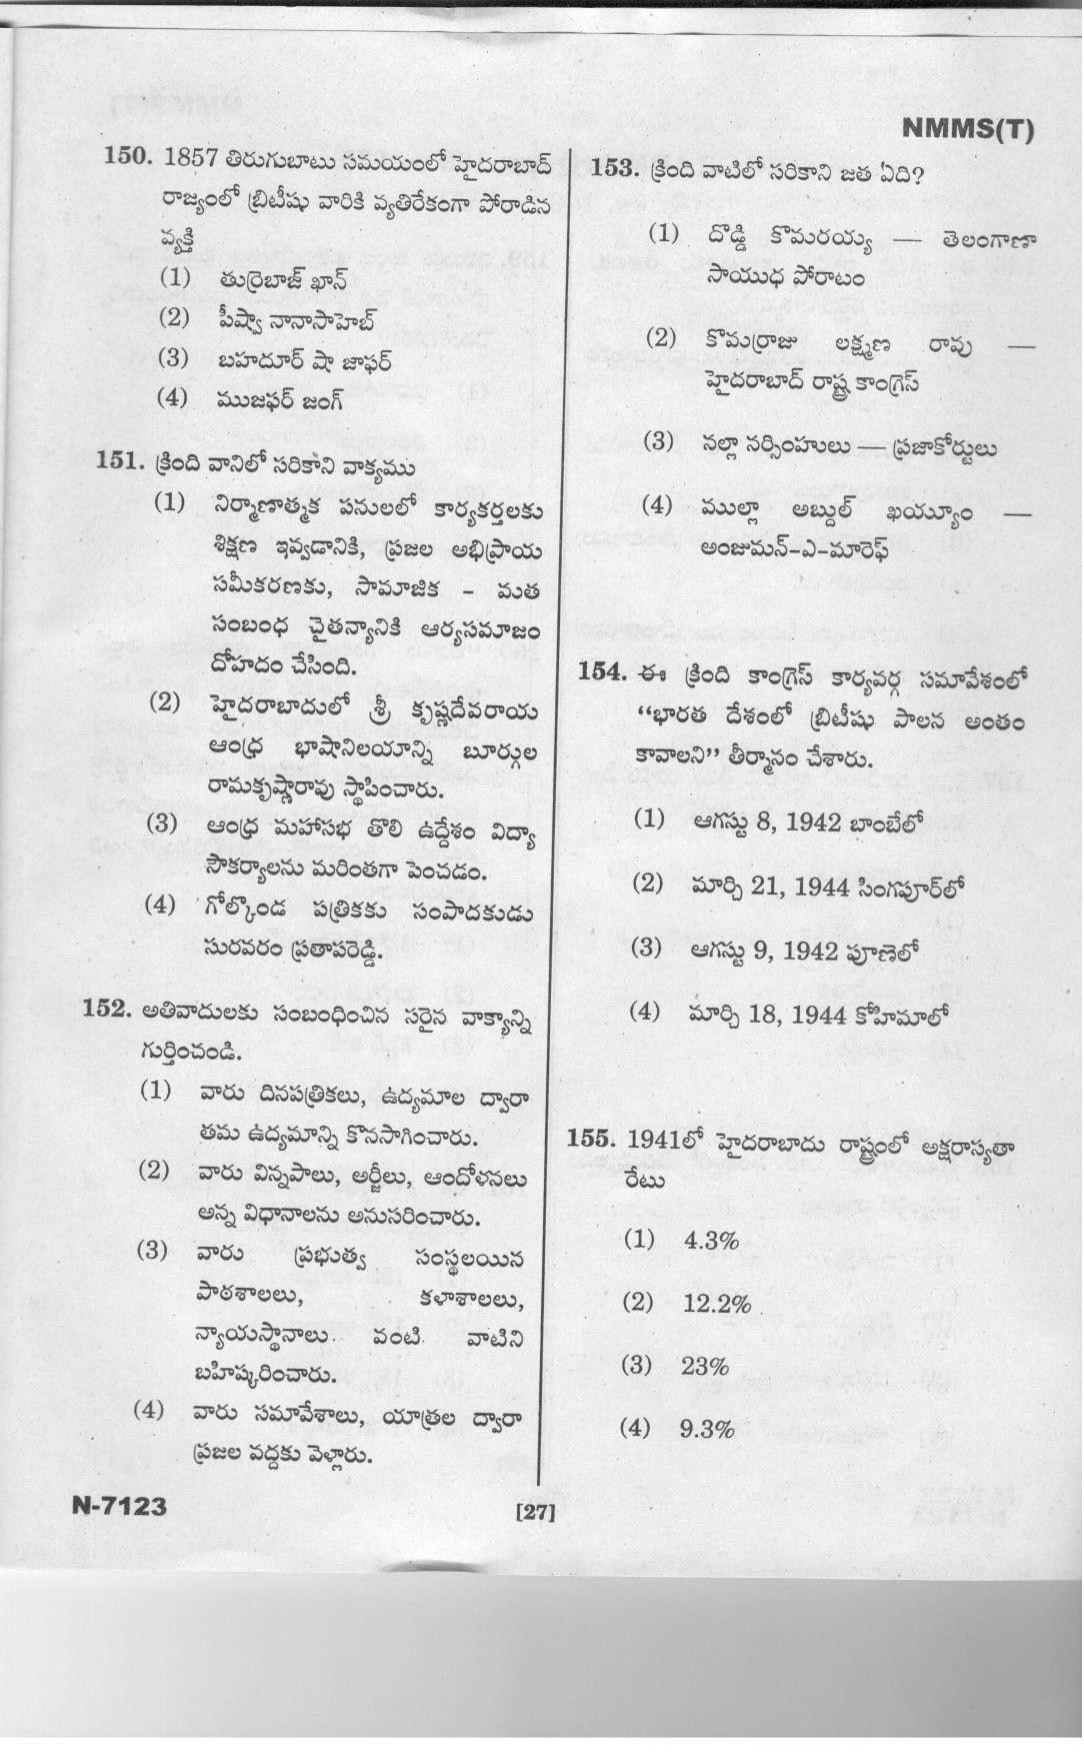 NMMS(T)
150. 1857 తిరుగుబాటు సమయంలో హైదరాబాద్
రాజ్యంలో బ్రిటీషు వారికి వ్యతిరేకంగా పోరాడిన
వ్యక్తి
(1) తుర్రెబాజ్ ఖాన్
(2) పీష్వా నానాసాహెబ్
(3) బహదూర్ షా జాఫర్
(4) ముజఫర్ జంగ్
151. క్రింది వానిలో సరికాని వాక్యము
(1) నిర్మాణాత్మక పనులలో కార్యకర్తలకు
శిక్షణ ఇవ్వడానికి, ప్రజల అభిప్రాయ
సమీకరణకు, సామాజిక - మత
సంబంధ చైతన్యానికి ఆర్యసమాజం
దోహదం చేసింది.
(2) హైదరాబాదులో శ్రీ కృష్ణదేవరాయ
ఆంధ్ర భాషానిలయాన్ని బూర్గుల
రామకృష్ణారావు స్థాపించారు.
(3) ఆంధ్ర మహాసభ తొలి ఉద్దేశం విద్యా
సౌకర్యాలను మరింతగా పెంచడం.
(4) గోల్కొండ పత్రికకు సంపాదకుడు
సురవరం ప్రతాపరెడ్డి.
152. అతివాదులకు సంబంధించిన సరైన వాక్యాన్ని
గుర్తించండి.
(1) వారు దినపత్రికలు, ఉద్యమాల ద్వారా
తమ ఉద్యమాన్ని కొనసాగించారు.
(2) వారు విన్నపాలు, అర్జీలు, ఆందోళనలు
అన్న విధానాలను అనుసరించారు.
(3) వారు ప్రభుత్వ సంస్థలయిన
పాఠశాలలు, కళాశాలలు,
న్యాయస్థానాలు వంటి వాటిని
బహిష్కరించారు.
(4) వారు సమావేశాలు, యాత్రల ద్వారా
ప్రజల వద్దకు వెళ్లారు.
153. క్రింది వాటిలో సరికాని జత ఏది?
(1) దొడ్డి కొమరయ్య — తెలంగాణా
సాయుధ పోరాటం
(2) కొమర్రాజు లక్ష్మణ రావు —
హైదరాబాద్ రాష్ట్ర కాంగ్రెస్
(3) నల్లా నర్సింహులు — ప్రజాకోర్టులు
(4) ముల్లా అబ్దుల్ ఖయ్యూం —
అంజుమన్-ఎ-మారెఫ్
154. ఈ క్రింది కాంగ్రెస్ కార్యవర్గ సమావేశంలో
“భారత దేశంలో బ్రిటీషు పాలన అంతం
కావాలని” తీర్మానం చేశారు.
(1) ఆగస్టు 8, 1942 బాంబేలో
(2) మార్చి 21, 1944 సింగపూర్‌లో
(3) ఆగస్టు 9, 1942 పూణెలో
(4) మార్చి 18, 1944 కోహిమాలో
155. 1941లో హైదరాబాదు రాష్ట్రంలో అక్షరాస్యతా
రేటు
(1) 4.3%
(2) 12.2%
(3) 23%
(4) 9.3%
N-7123
[27]